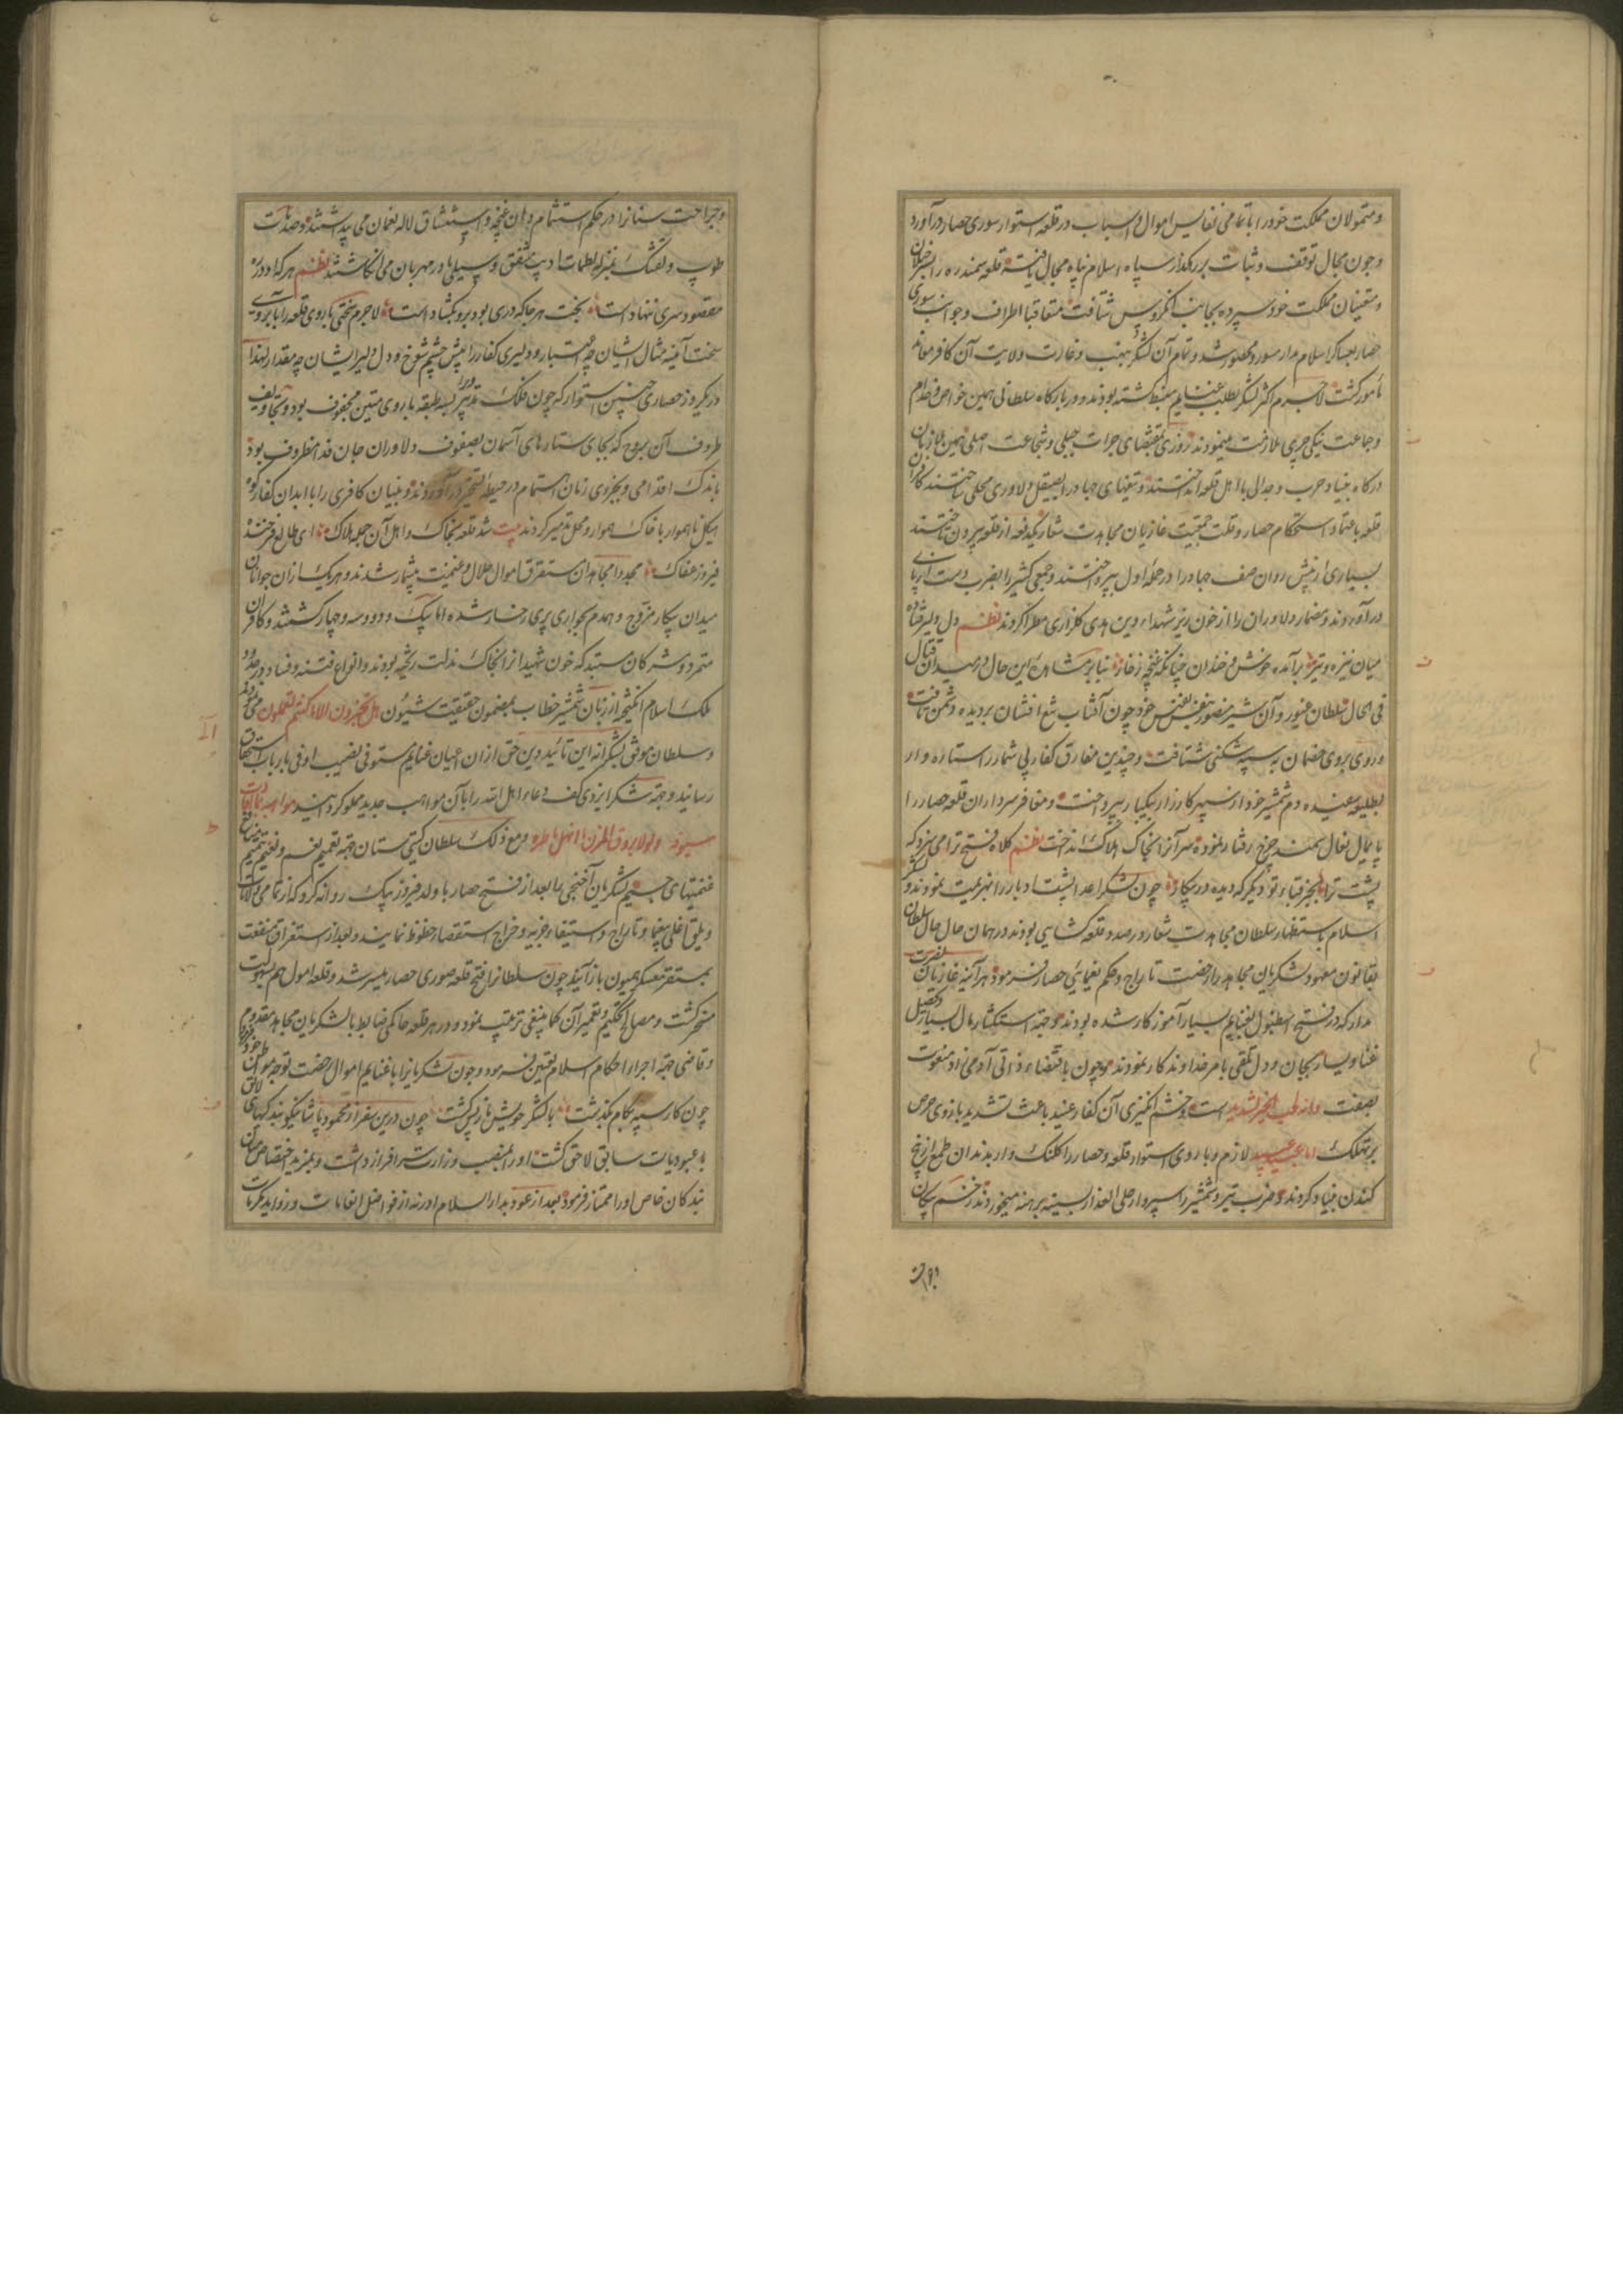 و متمولان مملکت خود را با تمامی نفایس اموال و اسباب در قلعه استوار سوری حصار در آورد
و چون مجال توقف و ثبات بر رهکذار سپاه اسلام پناه مجال یافته قلعه سمندره را
و متعینان مملکت خود سپرده بجانب انکروس شتافت متعاقبا اطراف و جوانب سوری
حصار بعساکر اسلام مدار سور و محصور شد و تمام آن لشکر بنهب و غارت ولایت آن کافر معاند
مأمور کشت لاجرم اکثر لشکر بطلب غنایم منبسط کشته بودند و در بارکاه سلطانی همین خواص و خدام
و جماعت ینکی چری ملازمت مینمودند روزی بمقتضای جرات جبلی و شجاعت اصلی همین ملازمان
درکاه بنیاد حرب و جدال با اهل قلعه انداختند و تیغهای جهاد را بصیقل دلاوری مجلی ساختند کافران
قلعه باعتماد استحکام حصار و قلت جمعیت غازیان مجاهدت شعار یکدفعه از قلعه بیرون تاختند
بسیاری از پیش روان صف جهاد را در حمله اول بپرداختند و جمعی کثیر را بضرب دست از پای
در آوردند و مضمار دلاوران را از خون ریز شهداء دین هدی کلزاری مطرا کردند نظم دل دلیر فتاده
میان نیزه و تیر برآمده خوش و خندان چنانکه غنچه ز خار بنابر مشاهده این حال در میدان قتال
فی الحال سلطان غیور و آن شیر منصور بنفس نفیس خود چون آفتاب تیغ افشان بر دیده دشمن تافت
و روی بروی خصمان به سپه شکنی شتافت و چندین مفارق کفار بی شمار را ستاره وار
بطلیعه سفیده دم شمشیر خود از سپهر کارزار بیکبار بپرداخت و مغافر سرداران قلعه حصار را
پایمال نعال سمند چرخ رفتار نموده سر آنرا بخاک هلاک انداخت نظم کلاه فتح ترا می سزد که
پشت ترا بجز قباء تو دیکر که دیده در پیکار چون لشکر اعدا پشت ادبار را بهزیمت نمودند و لشکر
اسلام باستظهار سلطان مجاهدت شعار در صدد قلعه کشایی بودند در همان حال حال سلطان
بقانون معهود لشکریان مجاهد را رخصت تاراج و حکم یغمای حصار فرمود هر آینه غازیان نصرت
مدار که در فتح اسطنبول بغنایم بسیار آموز کار شده بودند و جهة استکثار مال بسیار و تحصیل
غنا و یسار بجان و دل تلقی بامر خداوند کار نمودند و چون باقتضاء ذاتی آدمی زاد منعوت
بصفت وانه لحب الخیر لشدید است و خشم انکیزی آن کفار عنید باعث تشدید بازوی حرص
بر تملک لازم و باروی استوار قلعه و حصار را کلنک وار بدندان طمع از بیخ
کندن بنیاد کردند و ضرب تیر و شمشیر را سپر وار علی العذار بسینه برهنه میخوردند زخم پیکان
و جراحت
و جراحت سنانرا در حکم استشمام دهان غنچه و استنشاق لاله نعمان می پنداشتند و صدمات
طوپ و تفنک بمنزله لطمات ادیب مشفق و سیلی مادر مهربان می انکاشتند نظم هر که او در ره
مقصود سری ننهادست بخت هر جا که دری بود برو نکشادست لاجرم سختی باروی قلعه را با روی
سخت آیینه مثال ایشان چه اعتبار و دلیری کفار را پیش چشم شوخ و دل دلیر ایشان چه مقدار لهذا
در یکروز حصاری چنین استوار که چون فلک بسه طبقه باروی متین محفوف بود و تجاویف
ظروف آن بروج که بجای ستارهای آسمان بصفوف دلاوران جان فدا مظروف بود
باندک اقدامی و بجزوی زمان اهتمام در حیطه تسخیر در آوردند و بنیان کافری را با ابدان کفار کوه
هیکل ناهموار با خاک هموار و محل تدمیر کردند بیت شد قلعه بخاک و اهل آن جمله هلاک ای طالع فرخنده
فیروز عفاک مجددا مجاهدان مستغرق اموال حلال و غنیمت بیشمار شدند و هر یک از آن جوانان
میدان پیکار مزوج و همدم بجواری پری رخسار شده اما بیک و دو و سه و چهار کشتند و کافران
متمرد و مشرکان مستبد که خون شهیدانرا بخاک مذلت ریخته بودند و انواع فتنه و فساد در حدود
ملک اسلام انکیخته از زبان شمشیر خطاب بمضمون حقیقت مشیون هل تجزون الا ما کنتم تعملون می شنودند
و سلطان موفق بشکرانه این تأیید دین حق از آن اعیان غنایم مستوفی نصیب اوفی بارباب استحقاق
رسانید و جهة شکر ایزدی کف دعاء اهل الله را بآن مواهب جدید مملو کردانید
سیوفه و لولا بروق المزن ما انهل ماطره و مع ذلک سلطان کیتی ستان جهة تعمیم نعم و تتمیم
غنیمتهای جسیم لشکریان آخنجی را بعد از فتح حصار با ولد فیروز بیک روانه کرد که از تمامی ولایات
و یلق اغلی بیغما و تاراج و استیفاء جزیه و خراج استقصار حظوظ نمایند و بعد از استغراق منفعت
بمستقر معسکر همیون باز آیند چون سلطانرا فتح قلعه صوری حصار میسر شد و قلعه امول هم بسهولت
مسخر کشت و مصالح تحکیم و تعمیر آن کما ینبغی ترتیب نمود و در هر قلعه حاکمی ضابط با لشکریان مجاهد
و قاضی جهة اجراء احکام اسلام تعیین فرمود و چون لشکریانرا با غنایم اموال رخصت توجه بمواطن خود
چون کار سپهر بکام بکذشت با لشکر خویش باز پس کشت چون درین سفر از محمود پاشا نیکو بندکیهای لایق
با عبودیات سابق لاحق کشت او را بمنصب وزارت سرافراز داشت و بمزید اختصاص میان
بندکان خاص او را ممتاز فرمود بعد از عود بدار السلام ادرنه از فواضل انعامات و زواید تکرمات